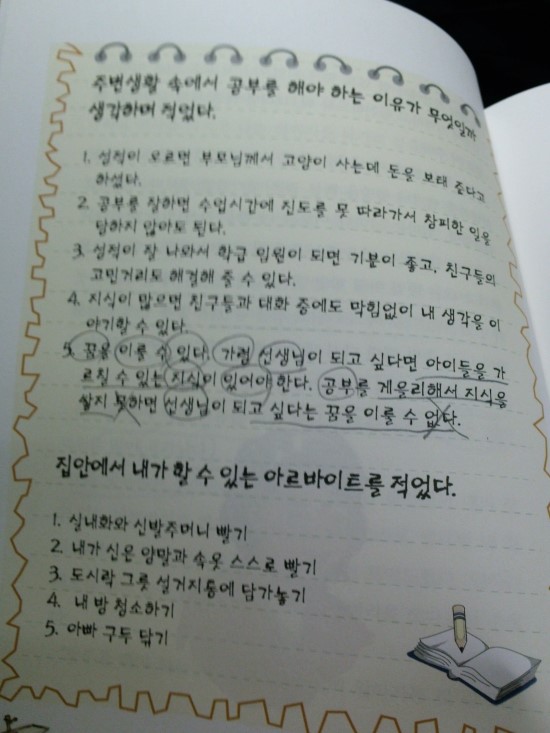 주변생활 속에서 공부를 해야 하는 이유가 무엇일까
생각하며 적었다.
1. 성적이 오르면 부모님께서 고양이 사는데 돈을 보태 준다고
하셨다.
2. 공부를 잘하면 수업시간에 진도를 못 따라가서 창피한 일을
당하지 않아도 된다.
3. 성적이 잘 나와서 학급 임원이 되면 기분이 좋고, 친구들의
고민거리도 해결해 줄 수 있다.
4. 지식이 많으면 친구들과 대화 중에도 막힘없이 내 생각을 이
야기할 수 있다.
5. 꿈을 이룰 수 있다. 가령 선생님이 되고 싶다면 아이들을 가
르칠 수 있는 지식이 있어야 한다. 공부를 게을리해서 지식을
쌓지 못하면 선생님이 되고 싶다는 꿈을 이룰 수 없다.
집안에서 내가 할 수 있는 아르바이트를 적었다.
1. 실내화와 신발주머니 빨기
2. 내가 신은 양말과 속옷 스스로 빨기
3. 도시락 그릇 설거지통에 담가놓기
4. 내 방 청소하기
5. 아빠 구두 닦기